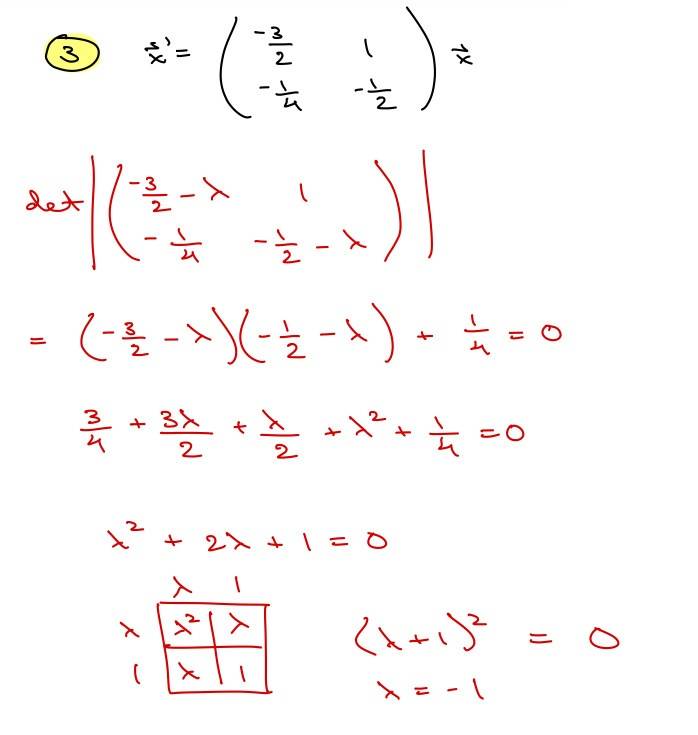 3 x⃗' = ( -3/2 1 ; -1/4 -1/2 ) x⃗
det | ( -3/2 - λ 1 ; -1/4 -1/2 - λ ) |
= ( -3/2 - λ )( -1/2 - λ ) + 1/4 = 0
3/4 + 3λ/2 + λ/2 + λ² + 1/4 = 0
λ² + 2λ + 1 = 0
λ 1
λ λ² λ
1 λ 1
(λ+1)² = 0
λ = -1